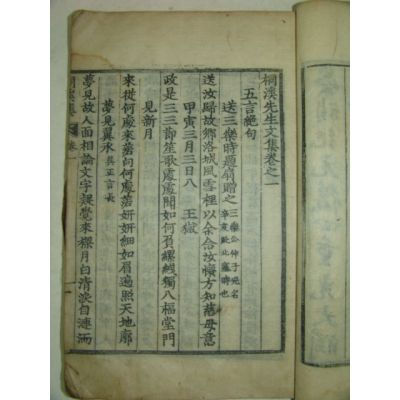 桐溪先生文集卷之一
五言絶句
送三樂時題扇贈之 三樂公仲子
送汝歸故鄉洛城風雪裡以余念汝懷方知慈母意
甲寅三月三日 王獄
政是三三節笙歌處處聞如何負縲絏獨入福堂門
見新月
來從何處來落向何處落姸姸細如眉遍照天地廓
夢見翼承 吳正言長
夢見故人面相論文字 覺來樑月白清淚自漣洏
桐溪集 卷一 一